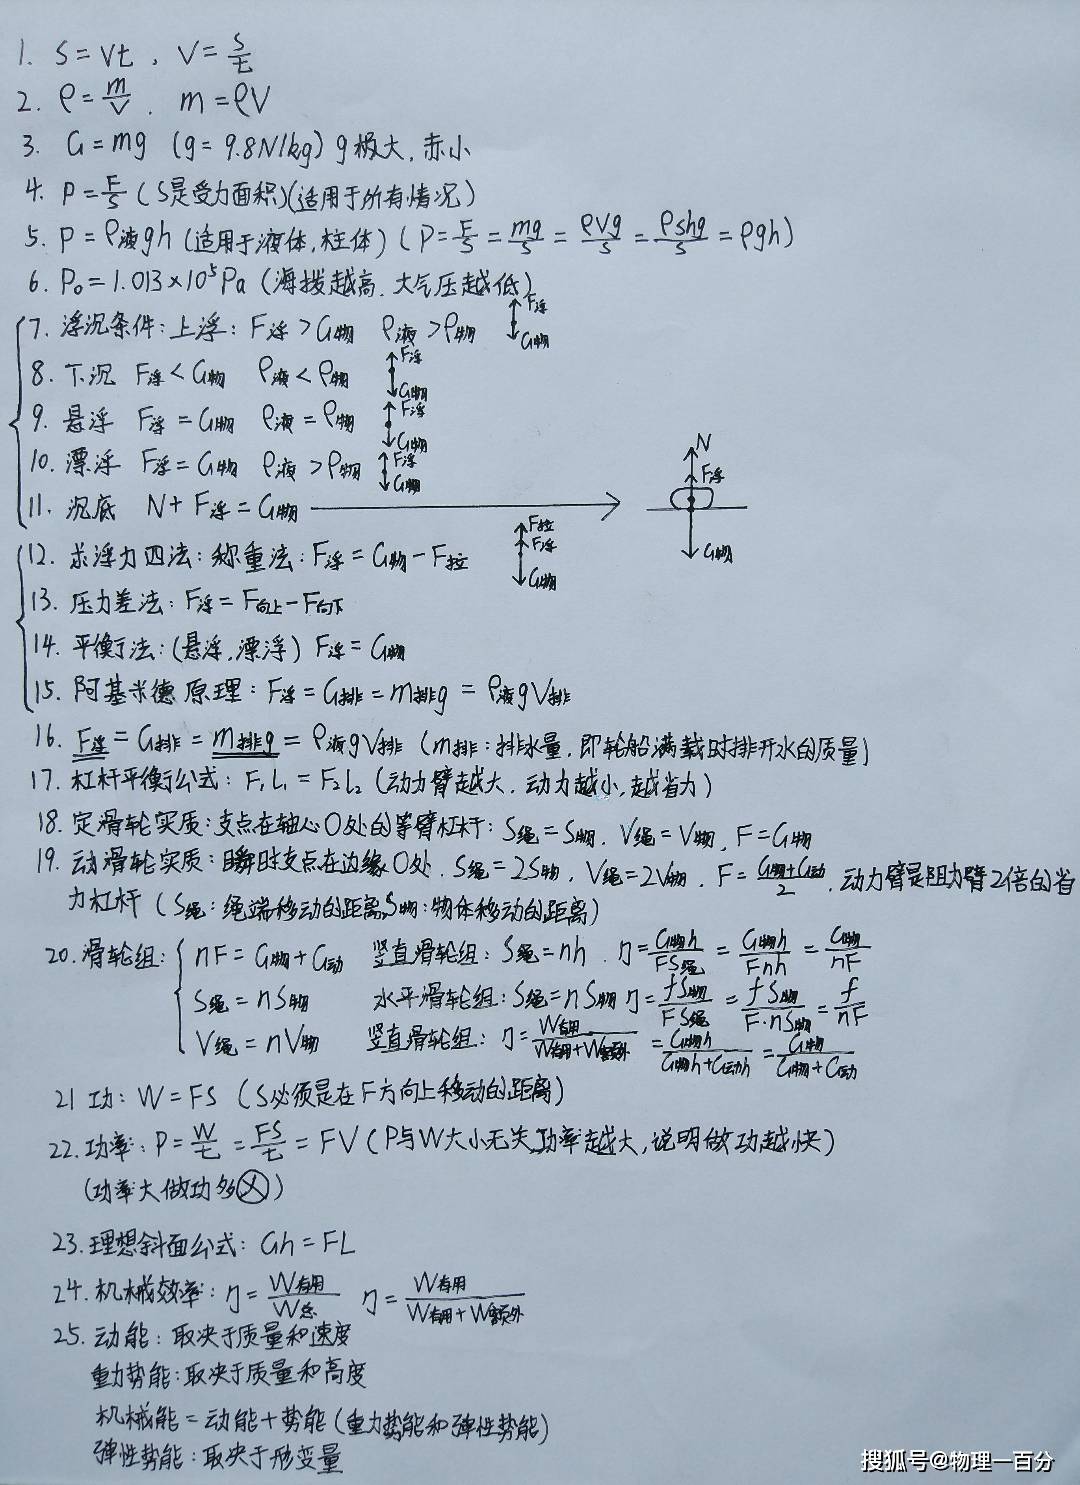 1. S=Vt, V=S/t
2. ρ=m/V. m=ρV
3. G=mg (g=9.8N/kg) g极大,赤小
4. P=F/S (S是受力面积)(适用于所有情况)
5. P=ρ液gh (适用于液体,柱体) (P=F/S=mg/S=ρVg/S=ρshg/S=ρgh)
6. P₀=1.013×10⁵Pa (海拔越高.大气压越低)
7. 浮沉条件:上浮:F浮>G物 ρ液>ρ物 F浮 G物
8. 下沉 F浮<G物 ρ液<ρ物 F浮 G物
9. 悬浮 F浮=G物 ρ液=ρ物 F浮 G物
10. 漂浮 F浮=G物 ρ液>ρ物 F浮 G物
11. 沉底 N+F浮=G物 N F浮 G物
12. 求浮力四法:称重法:F浮=G物-F拉 F拉 F浮 G物
13. 压力差法:F浮=F向上-F向下
14. 平衡法:(悬浮.漂浮) F浮=G物
15. 阿基米德原理:F浮=G排=m排g=ρ液gV排
16. F浮=G排=m排g=ρ液gV排 (m排:排水量.即轮船满载时排开水的质量)
17. 杠杆平衡公式:F₁L₁=F₂L₂ (动力臂越大.动力越小,越省力)
18. 定滑轮实质:支点在轴心O处的等臂杠杆:S绳=S物.V绳=V物.F=G物
19. 动滑轮实质:瞬时支点在边缘O处.S绳=2S物.V绳=2V物.F=(G物+G动)/2.动力臂是阻力臂2倍的省
力杠杆 (S绳:绳端移动的距离,S物:物体移动的距离)
20. 滑轮组: nF=G物+G动 竖直滑轮组:S绳=nh.η=G物h/FS绳=G物h/Fnh=G物/nF
S绳=nS物 水平滑轮组:S绳=nS物 η=fS物/FS绳=fS物/F·nS物=f/nF
V绳=nV物 竖直滑轮组:η=W有用/(W有用+W额外)=G物h/(G物h+G动h)=G物/(G物+G动)
21 功:W=FS (S必须是在F方向上移动的距离)
22. 功率:P=W/t=FS/t=FV (P与W大小无关.功率越大,说明做功越快)
(功率大做功多ⓧ)
23. 理想斜面公式:Gh=FL
24. 机械效率:η=W有用/W总 η=W有用/(W有用+W额外)
25. 动能:取决于质量和速度
重力势能:取决于质量和高度
机械能=动能+势能(重力势能和弹性势能)
弹性势能:取决于形变量
搜狐号@物理一百分